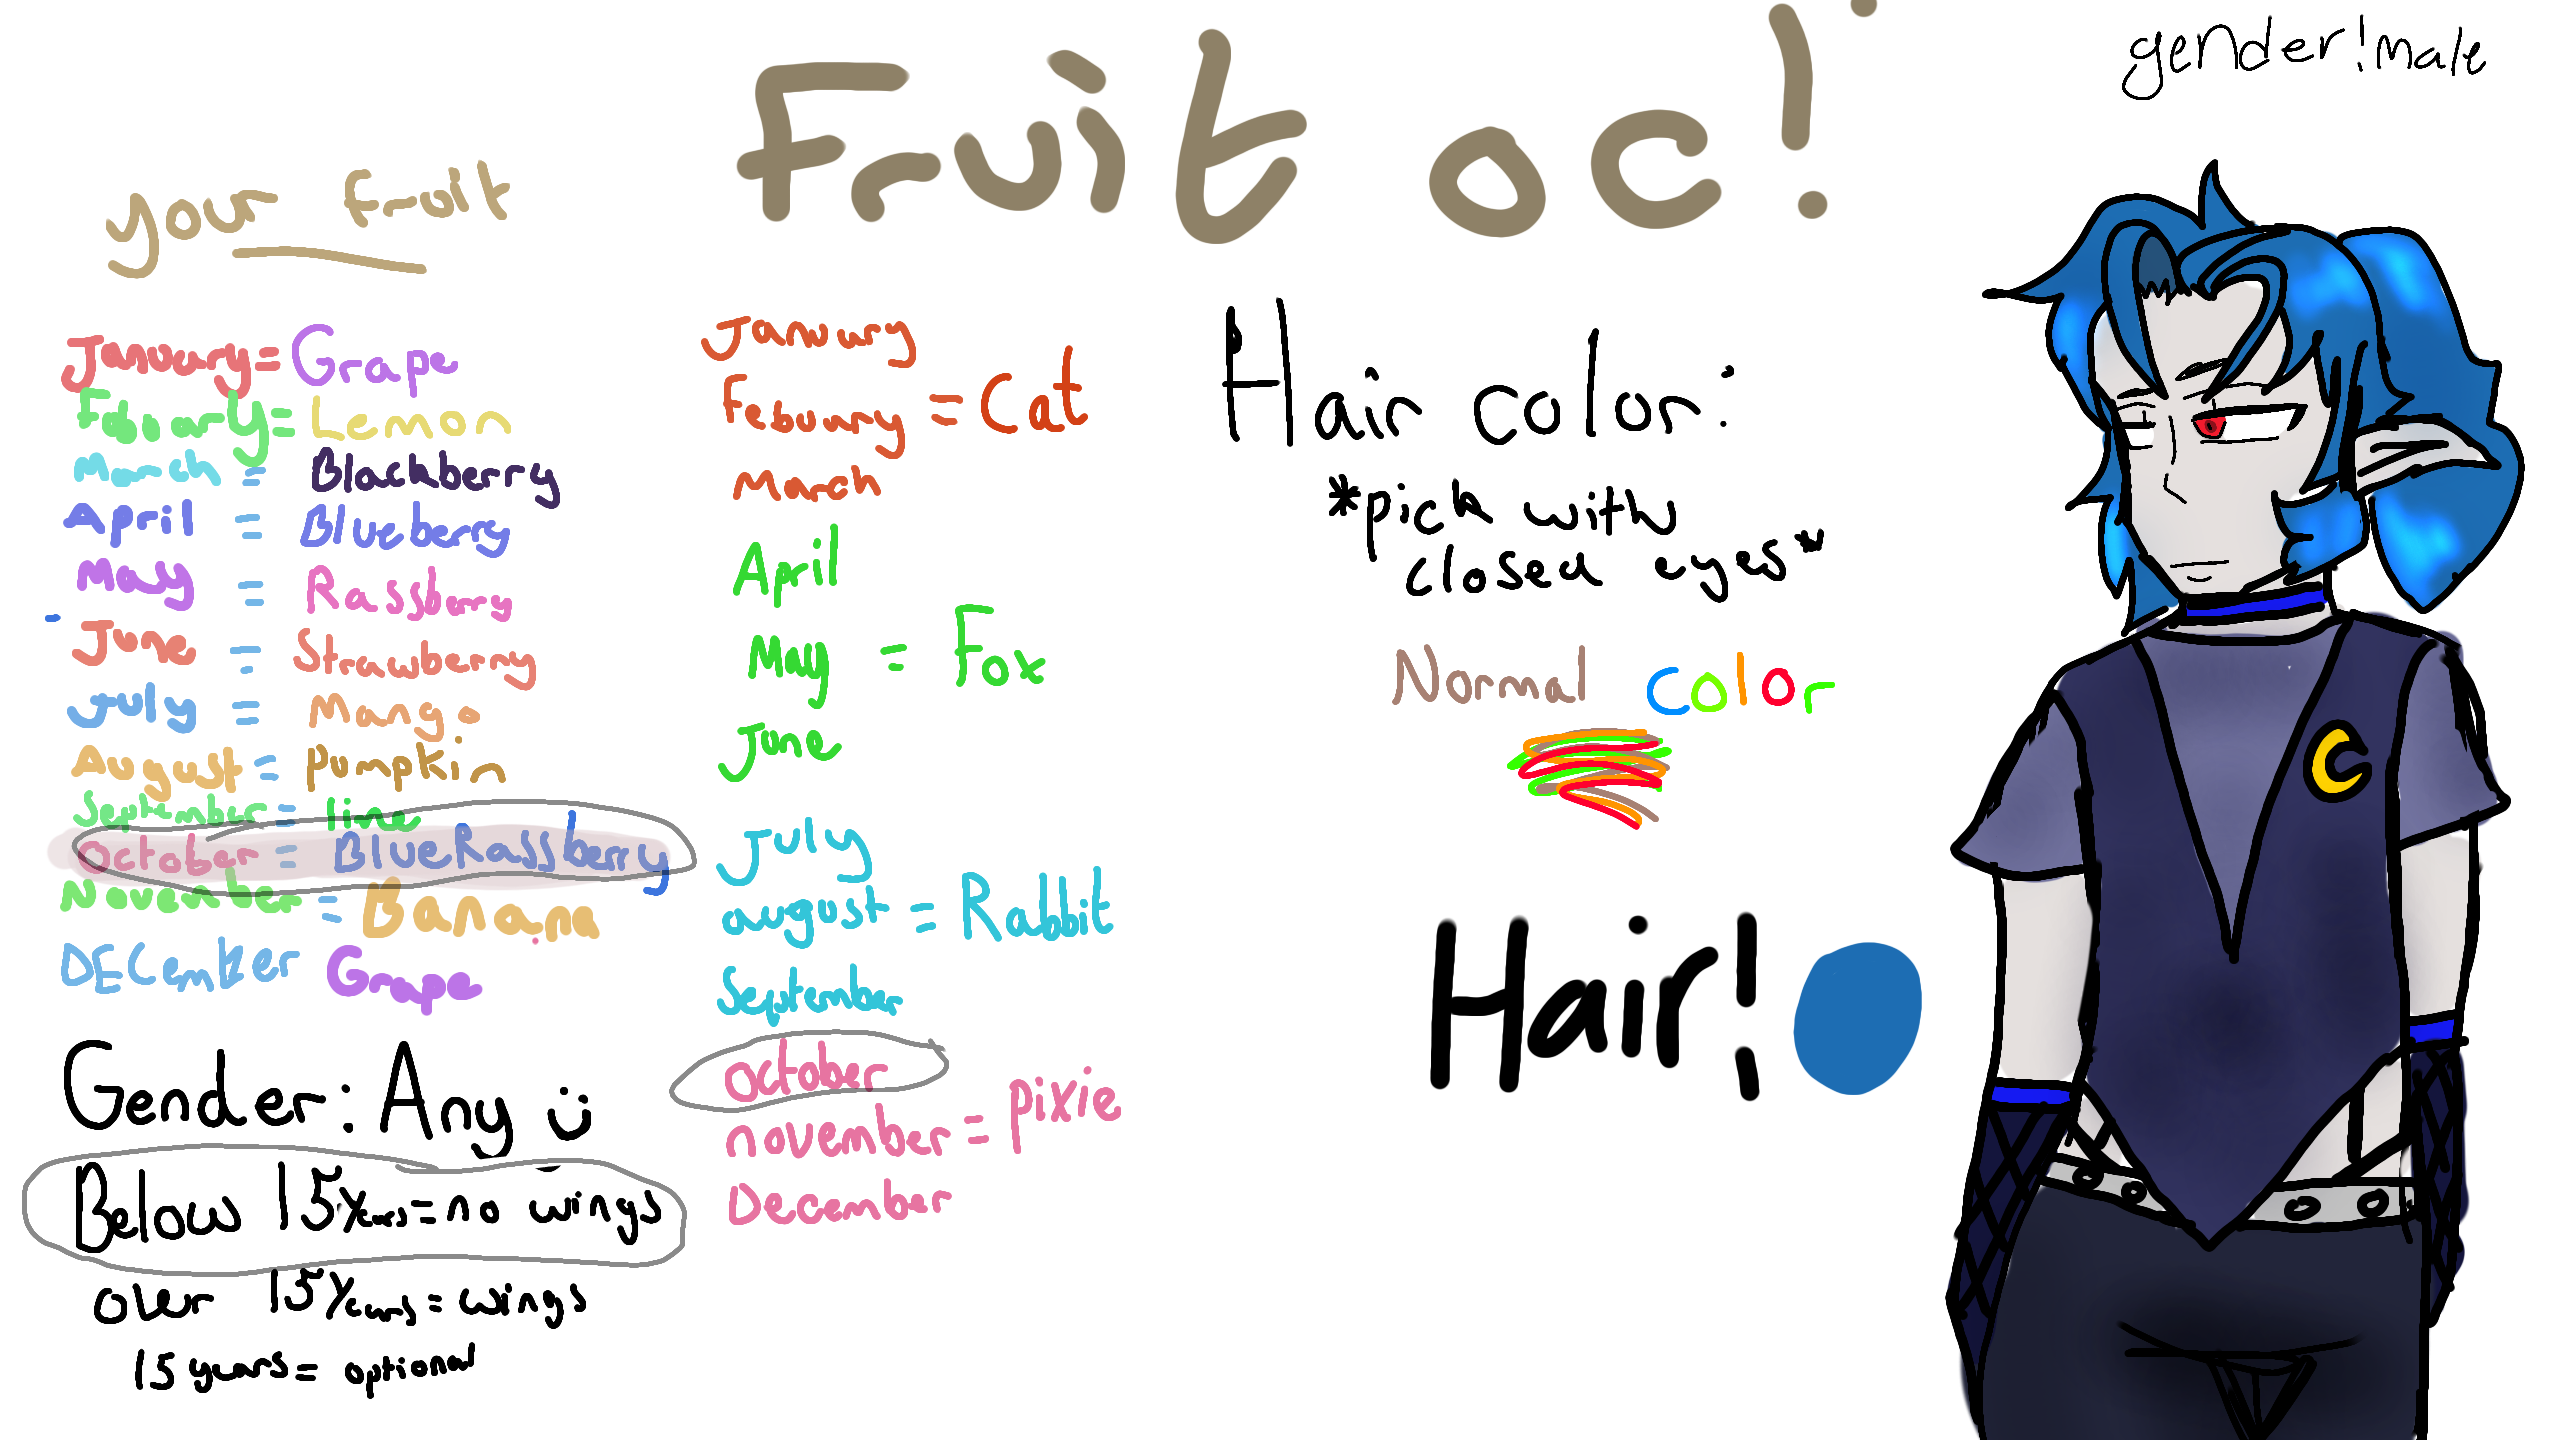 Fruit oc!
gender!male
your fruit
January= Grape
Febuary= Lemon
March = Blackberry
April = Blueberry
May = Rassberry
June = Strawberry
July = Mango
August= Pumpkin
September = line
October = BlueRassberry
November = Banana
DECember Grape
Gender: Any
Below 15years=no wings
over 15years=wings
15 years= optional
Janury
Febuary = Cat
March
April
May = Fox
June
July
august = Rabbit
September
october
november = pixie
December
Hair color:
*pick with
closed eyes*
Normal color
Hair!